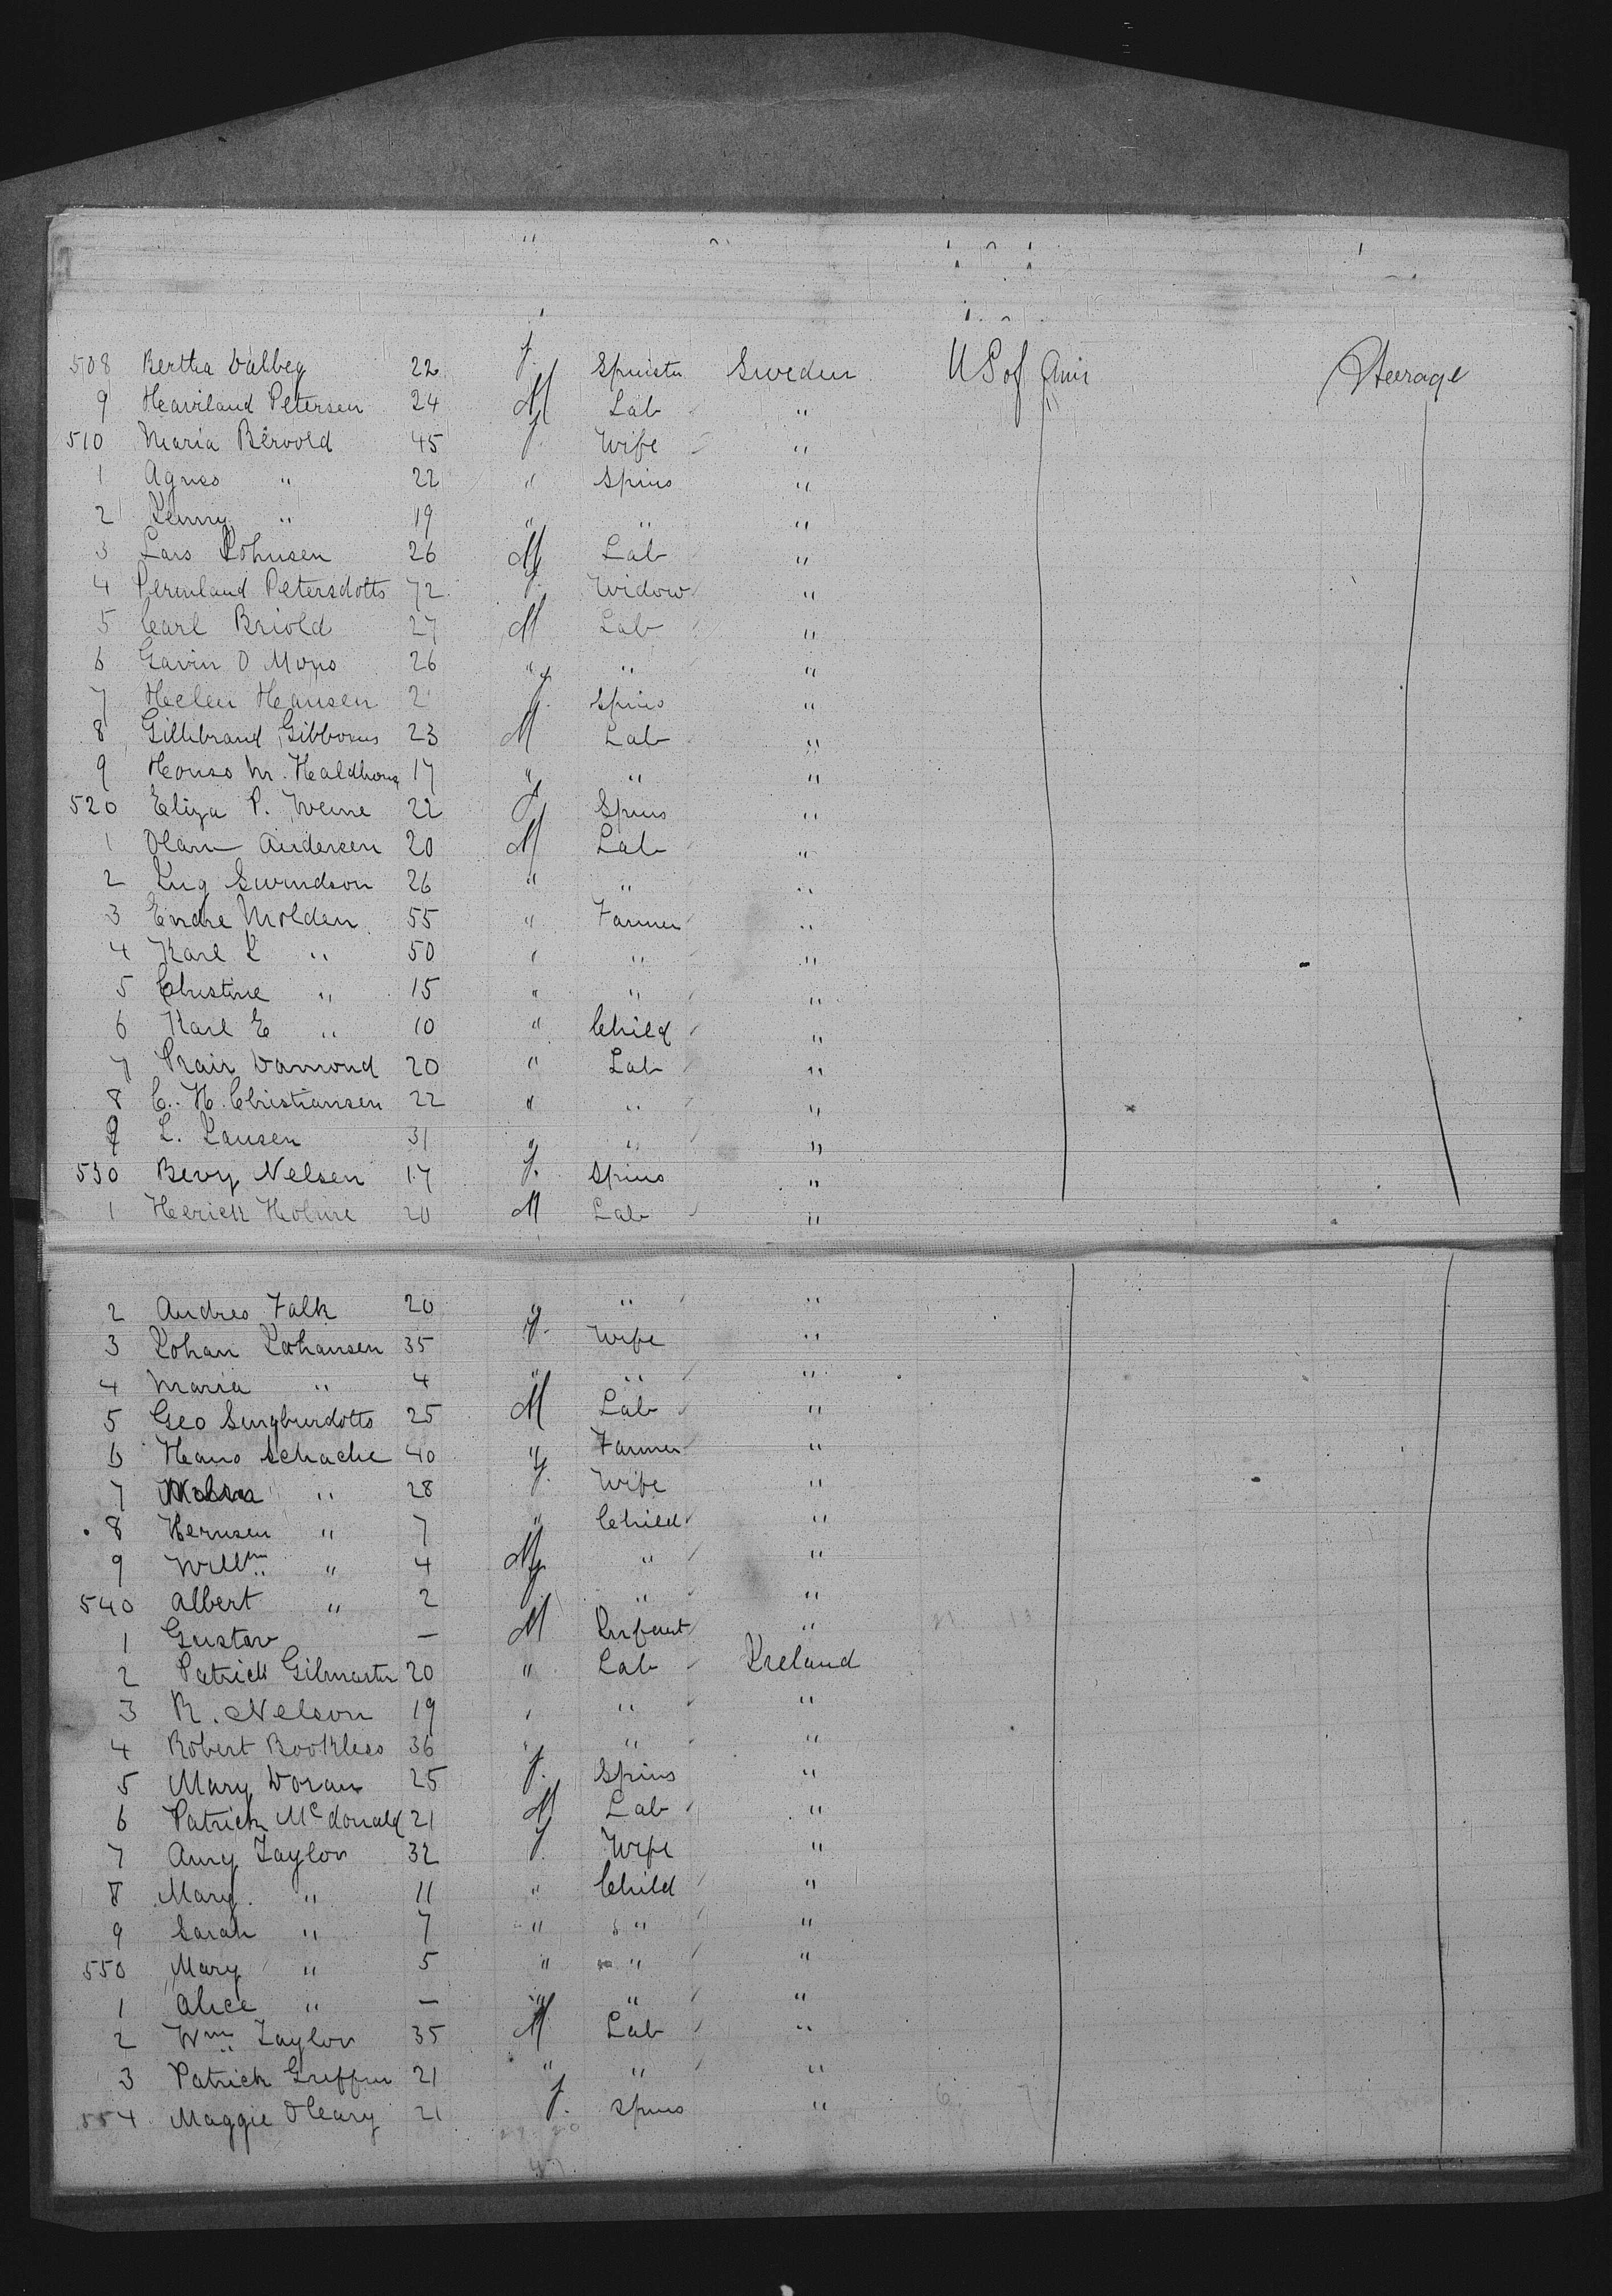 508 Bertha Valbeg 22 f. Spinster Sweden U S of Am Steerage
9 Haviland Petersen 24 M Lab " "
510 Maria Bervold 45 f. Wife "
1 Agnes " 22 " Spins "
2 Jenny " 19 " " "
3 Lars Johnsen 26 M Lab "
4 Permland Petersdotts 72 f. Widow "
5 Carl Briold 27 M Lab "
6 Gavin O Mons 26 " " "
7 Helen Hansen 2 f. Spins "
8 Gillibrand Gibbons 23 M Lab "
9 Honso M. 17 " " "
520 Eliza P. 22 f Spins "
1 Olam Andersen 20 M Lab "
2 Swindson 26 " " "
3 Endre Molden 55 " Farmer "
4 Karl L " 50 " " "
5 Christine " 15 " " "
6 Karl E " 10 " Child "
7 Damond 20 " Lab "
8 C. H. Christiansen 22 " " "
9 L. Lausen 31 " " "
530 Bevy Nelsen 17 f. Spins "
1 Herick Holme 20 M Lab "
2 Andres Falk 20 " " "
3 Johan Johansen 35 f. Wife "
4 Maria " 4 " " "
5 Geo 25 M Lab "
6 Hans Schache 40 " Farmer "
7 " 28 f. Wife "
8 Hernsen " 7 " Child "
9 Willm " 4 M " "
540 Albert " 2 f " "
1 Gustav — M Infant "
2 Patrick Gilmartin 20 " Lab Ireland
3 R. Nelson 19 " " "
4 Robert Bookless 36 " " "
5 Mary Doran 25 f. Spins "
6 Patrick McDonald 21 M Lab "
7 Amy Taylor 32 f. Wife "
8 Mary " 11 " Child "
9 Sarah " 7 " " "
550 Mary " 5 " " "
1 Alice " — " " "
2 Wm Taylor 35 M Lab "
3 Patrick Griffin 21 " " "
554 Maggie O'Leary 21 f. Spins "